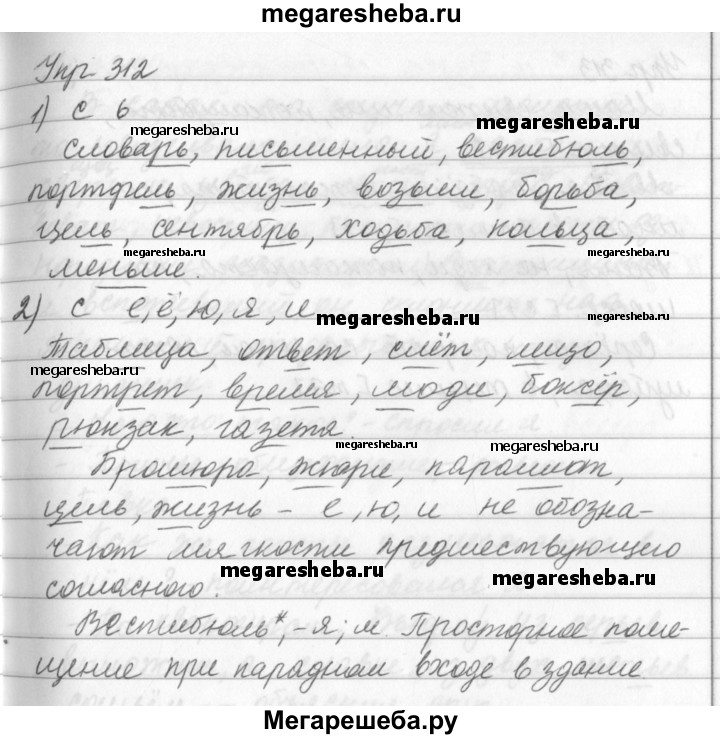 megaresheba.ru
Упр 312
1) с ь
megaresheba.ru
megaresheba.ru
словарь, письменный, вестибюль,
портфель, жизнь, возьми, борьба,
цель, сентябрь, ходьба, кольца,
megaresheba.ru
megaresheba.ru
megaresheba.ru
меньше.
2) с е, ё, ю, я, и
megaresheba.ru
таблица, ответ, слёт, лицо,
megaresheba.ru
портрет, время, люди, боксёр,
рюкзак, газета.
megaresheba.ru
megaresheba.ru
Брошюра, жюри, парашют,
цель, жизнь – е, ю, и не обозна-
чают мягкости предшествующего
согласного.
megaresheba.ru
megaresheba.ru
Вестибюль*, -я; м. Просторное поме-
щение при парадном входе в здание.
Мегарешеба.ру